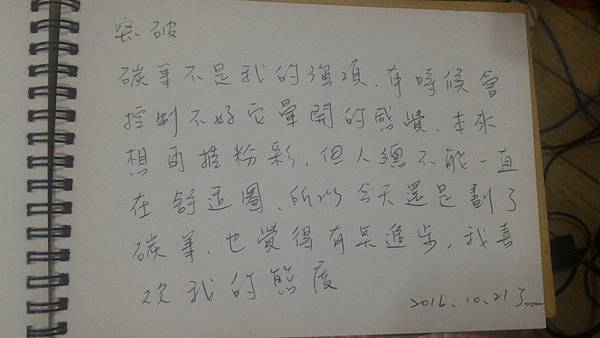 突破
碳筆不是我的強項,有時候會
控制不好它暈開的感覺,本來
想再擦粉彩,但人總不能一直
在舒適圈,所以今天還是劃了
碳筆,也覺得有某進步,我喜
欢我的態度
2016.10.21